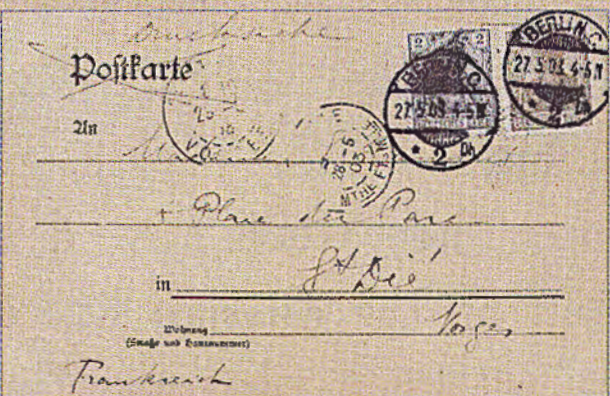 Drucksache
Postkarte
2 2
BERLIN.C.
27.5.03.4-5N
* 2 Dh
BERLIN.C.
27.5.03.4-5N
* 2 Dh
An
Place du Parc
in St Dié
Wohnung
(Straße und Hausnummer)
Vosges
Frankreich